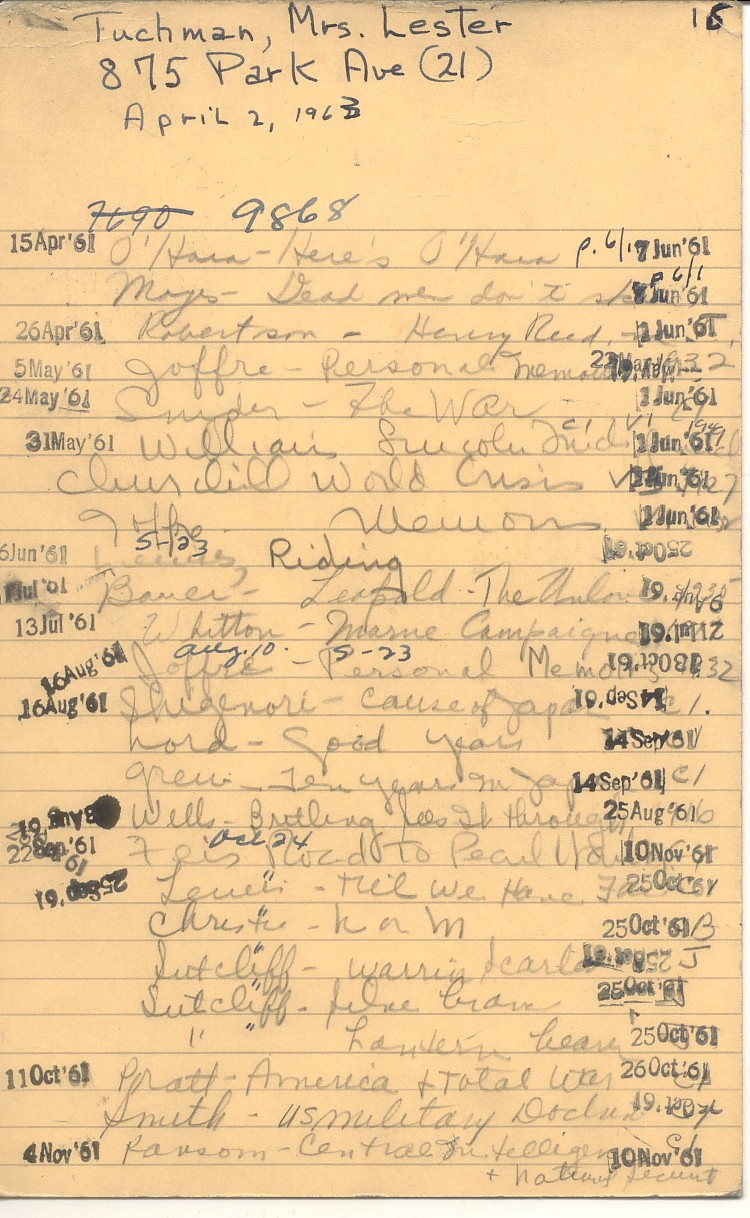 Tuchman, Mrs. Lester 15
875 Park Ave (21)
April 2, 1963
7690 9868
15 Apr '61 O'Hara - Here's O'Hara p. 6/1 7 Jun '61
Mays - Dead men don't p 6/1 Jun '61
26 Apr '61 Robertson - Henry Reed, Jun '61
5 May '61 Joffre - Personal Memoirs 1932
24 May '61 Snyder - The War 1 Jun '61
31 May '61 William Lincoln 1 Jun '61
Churchill World Crisis Jun '61
Joffre Memoirs 1 Jun '61
6 Jun '61 5-23 Riding 25 Oct '61
Jul '61 Bauer - Leopold - The Unloved 9 Aug '61
13 Jul '61 Whitton - Marne Campaign 21 Jul '61
Aug. 10. 5-23
16 Aug '61 Joffre - Personal Memoirs 13 Oct '61 1932
16 Aug '61 Shigenori - Cause of Japan 14 Sep '61 C1.
Lord - Good Years 14 Sep '61
Grew - Ten years in Japan 14 Sep '61 C1
Wells - Britling Sees It through 25 Aug '61
Oct 24
22 Sep '61 Feis Road to Pearl Harbor 10 Nov '61
25 Sep '61 Lewis - Till We Have Faces 25 Oct '61
Christie - N or M 25 Oct '61 B
Sutcliff - Warrior Scarlet 25 J
Sutcliff - Silver Branch 25 Oct '61 J
" " Lantern bearers 25 Oct '61
11 Oct '61 Pratt - America & Total War 26 Oct '61
Smith - US military Doctrine
4 Nov '61 Ransom - Central Intelligence C1 10 Nov '61
+ National Security